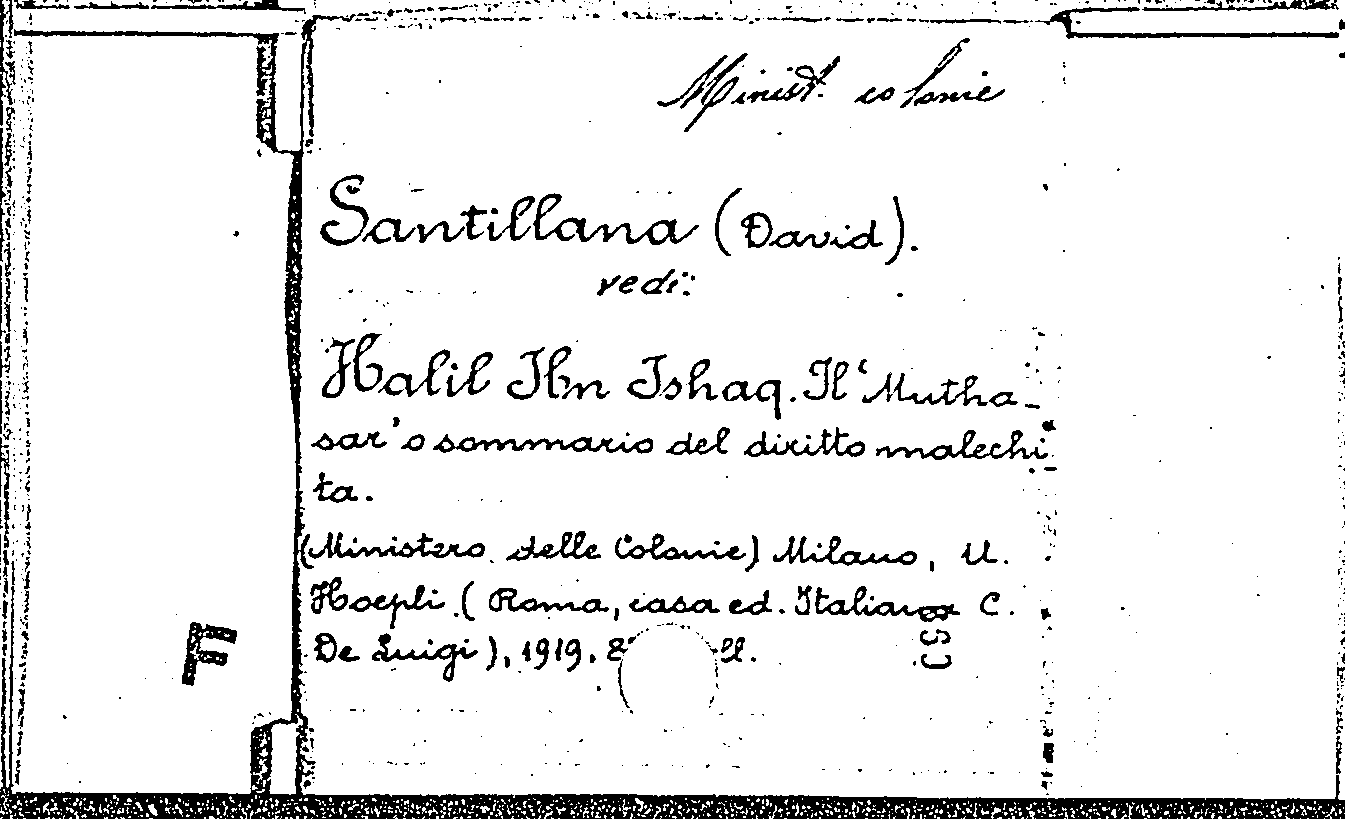 Minist. colonie
Santillana (David).
vedi:
Halil Ibn Ishaq. Il 'Mutha-
sar' o sommario del diritto malechi-
ta.
(Ministero delle Colonie) Milano, U.
Hoepli. (Roma, casa ed. Italiana C.
De Luigi), 1919. 8° ll.
F